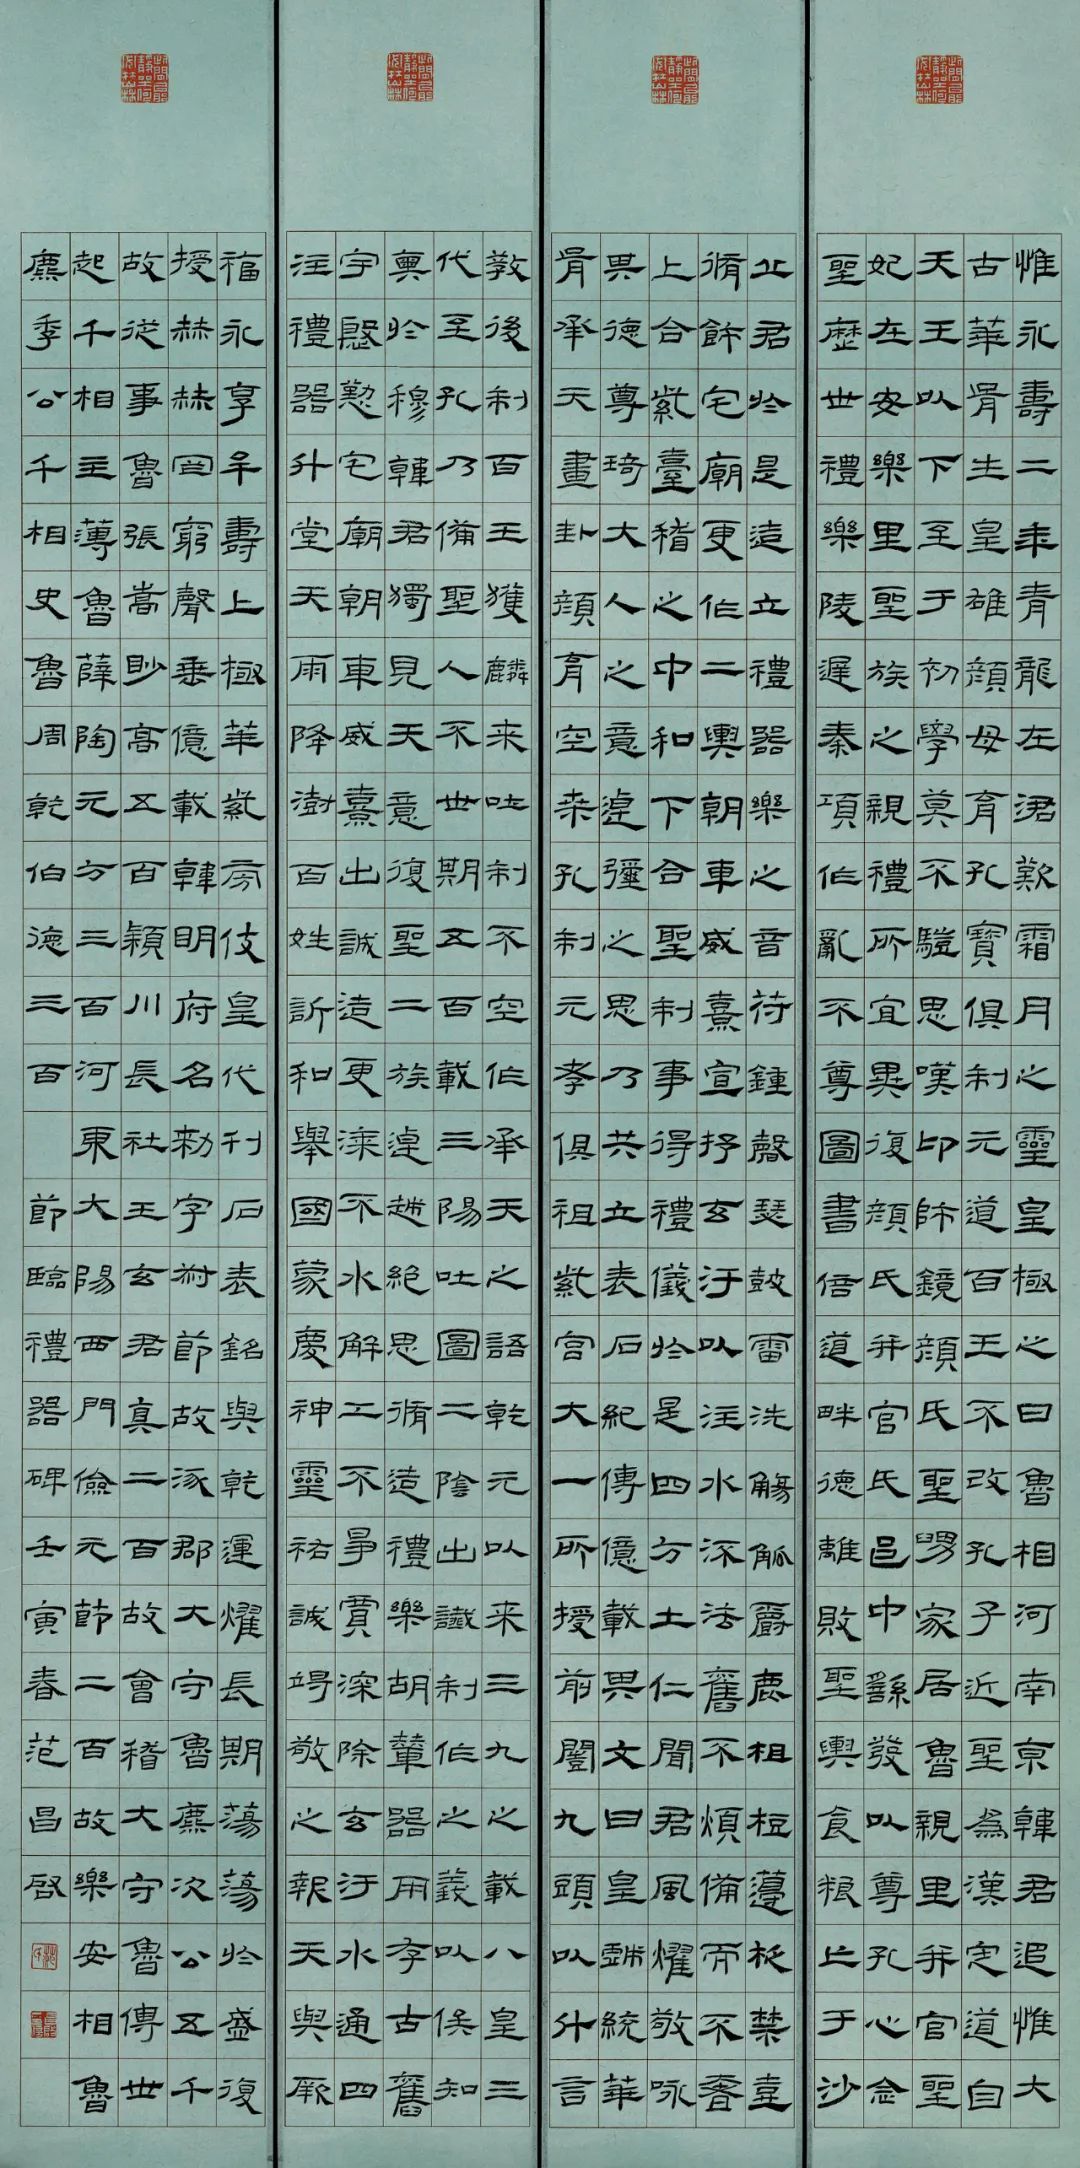 惟永壽二年青龍在涒歎霜月之靈皇極之日魯相河南京韓君追惟大
古華胥生皇雄顏母育孔寶俱制元道百王不改孔子近聖為漢定道自
天王以下至于初學莫不驥思嘆卬師鏡顏氏聖舅家居魯親里并官聖
妃在安樂里聖族之親禮所宜異復顏氏并官氏邑中繇發以尊孔心念
聖歷世禮樂陵遲秦項作亂不尊圖書倍道畔德離敗聖輿食糧亡于沙
丘君於是造立禮器樂之音符鍾磬瑟鼓雷洗觴觚爵鹿柤梪籩柉禁壺
脩飾宅廟更作二輿朝車威熹宣抒玄汙以注水流法舊不煩備而不奢
上合紫臺稽之中和下合聖制事得禮儀於是四方土仁聞君風耀敬咏
其德尊琦大人之意逴彌之思乃共立表石紀傳億載其文曰皇戲統華
胥承天畫卦顏育空桑孔制元孝俱祖紫宮大一所授前闓九頭以升言
教後制百王獲麟來吐制不空作承天之語乾元以來三九之載八皇三
代至孔乃備聖人不世期五百載三陽吐圖二陰出讖制作之義以俟知
奧於穆韓君獨見天意復聖二族逴越絕思脩造禮樂胡輦器用存古舊
宇慇懃宅廟朝車威熹出誠造更漆不水解工不爭賈深除玄汙水通四
注禮器升堂天雨降澍百姓訢和舉國蒙慶神靈祐誠竭敬之報天與厥
福永享牟壽上極華紫旁伎皇代刊石表銘與乾運耀長期蕩蕩於盛復
授赫赫罔窮聲垂億載韓明府名勑字叔節故涿郡大守魯麃次公五千
故從事魯張嵩眇高五百潁川長社王玄君真二百故會稽大守魯傅世
起千相主薄魯薛陶元方三百河東大陽西門儉元節二百故樂安相魯
麃季公千相史魯周乾伯德三百 節臨禮器碑壬寅春范昌啟